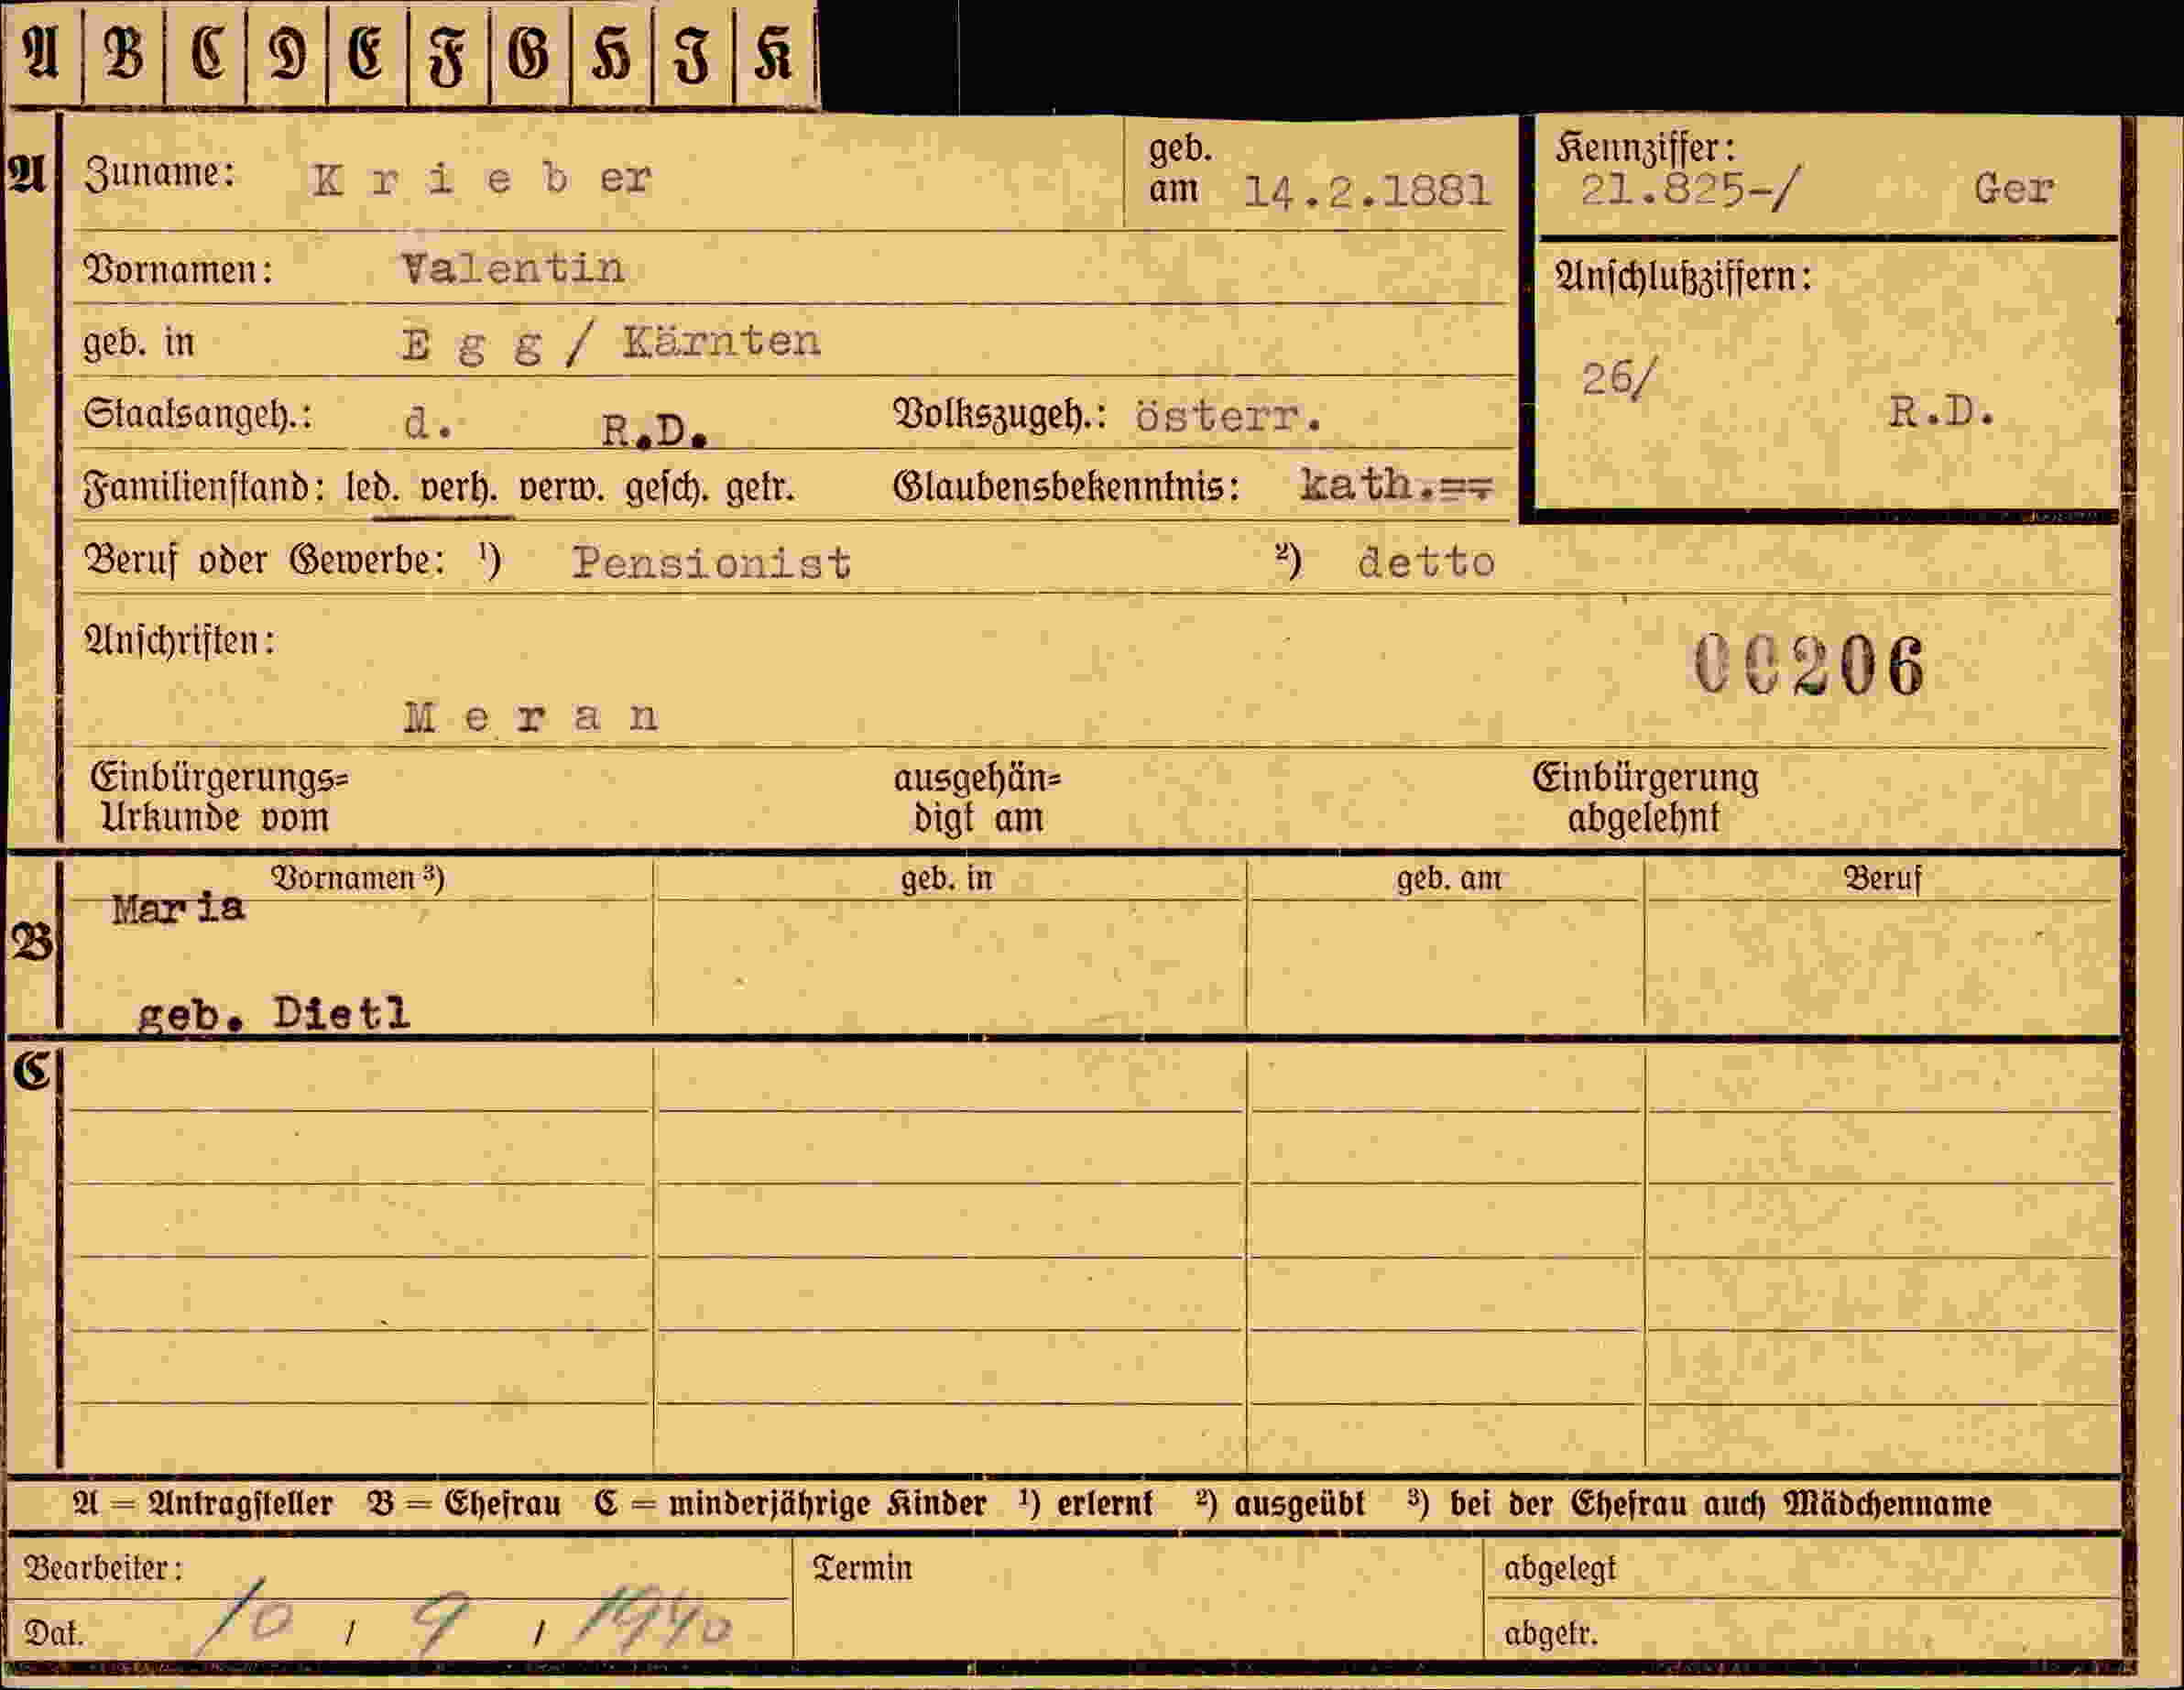 A B C D E F G H J K
A Zuname: K r i e b er geb. am 14.2.1881 Kennziffer: 21.825-/ Ger
Vornamen: Valentin
Anschlußziffern:
geb. in E g g / Kärnten
26/ R.D.
Staatsangeh.: d. R.D. Volkszugeh.: österr.
Familienstand: led. verh. verw. gesch. getr. Glaubensbekenntnis: kath.==
Beruf oder Gewerbe: ¹) Pensionist ²) detto
Anschriften:
00206
M e r a n
Einbürgerungs= ausgehän= Einbürgerung
Urkunde vom digt am abgelehnt
Vornamen ³) geb. in geb. am Beruf
Maria
B
geb. Dietl
C
A = Antragsteller B = Ehefrau C = minderjährige Kinder ¹) erlernt ²) ausgeübt ³) bei der Ehefrau auch Mädchenname
Bearbeiter: Termin abgelegt
Dat. 10 / 9 / 1940 abgetr.